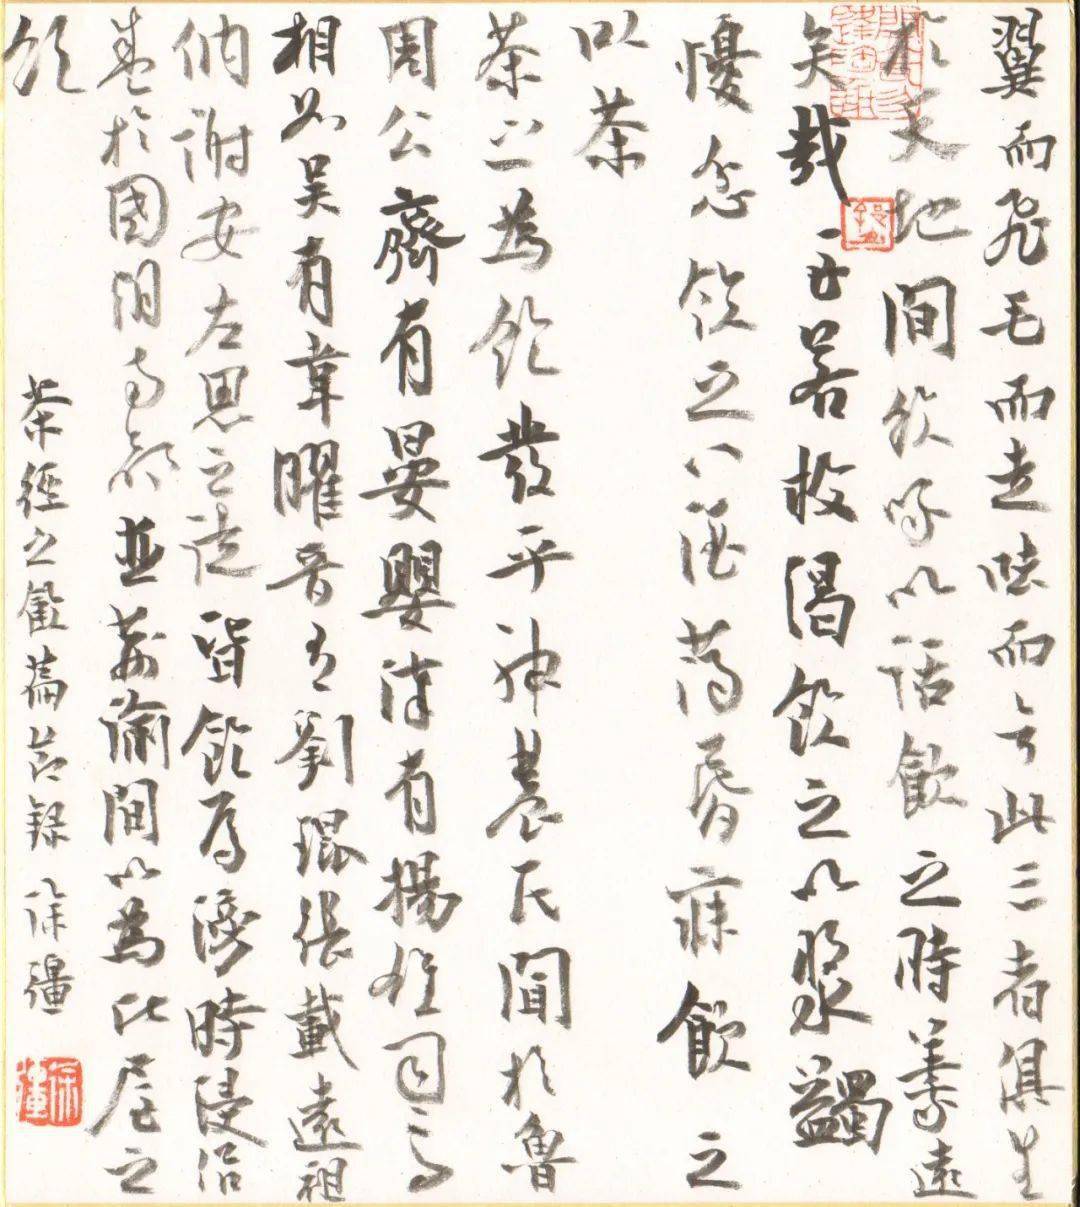 翼而飛毛而走呿而言此三者俱生
於天地間飲啄以活飲之時義遠
矣哉至若救渴飲之以漿蠲
憂忿飲之以酒蕩昏寐飲之
以茶
茶之為飲發乎神農氏聞於魯
周公齊有晏嬰漢有揚雄司馬
相如吳有韋曜晉有劉琨張載遠祖
納謝安左思之徒皆飲焉滂時浸俗
盛於國朝兩都並荊渝間以為比屋之
飲
茶經之飲篇節錄 徐彊